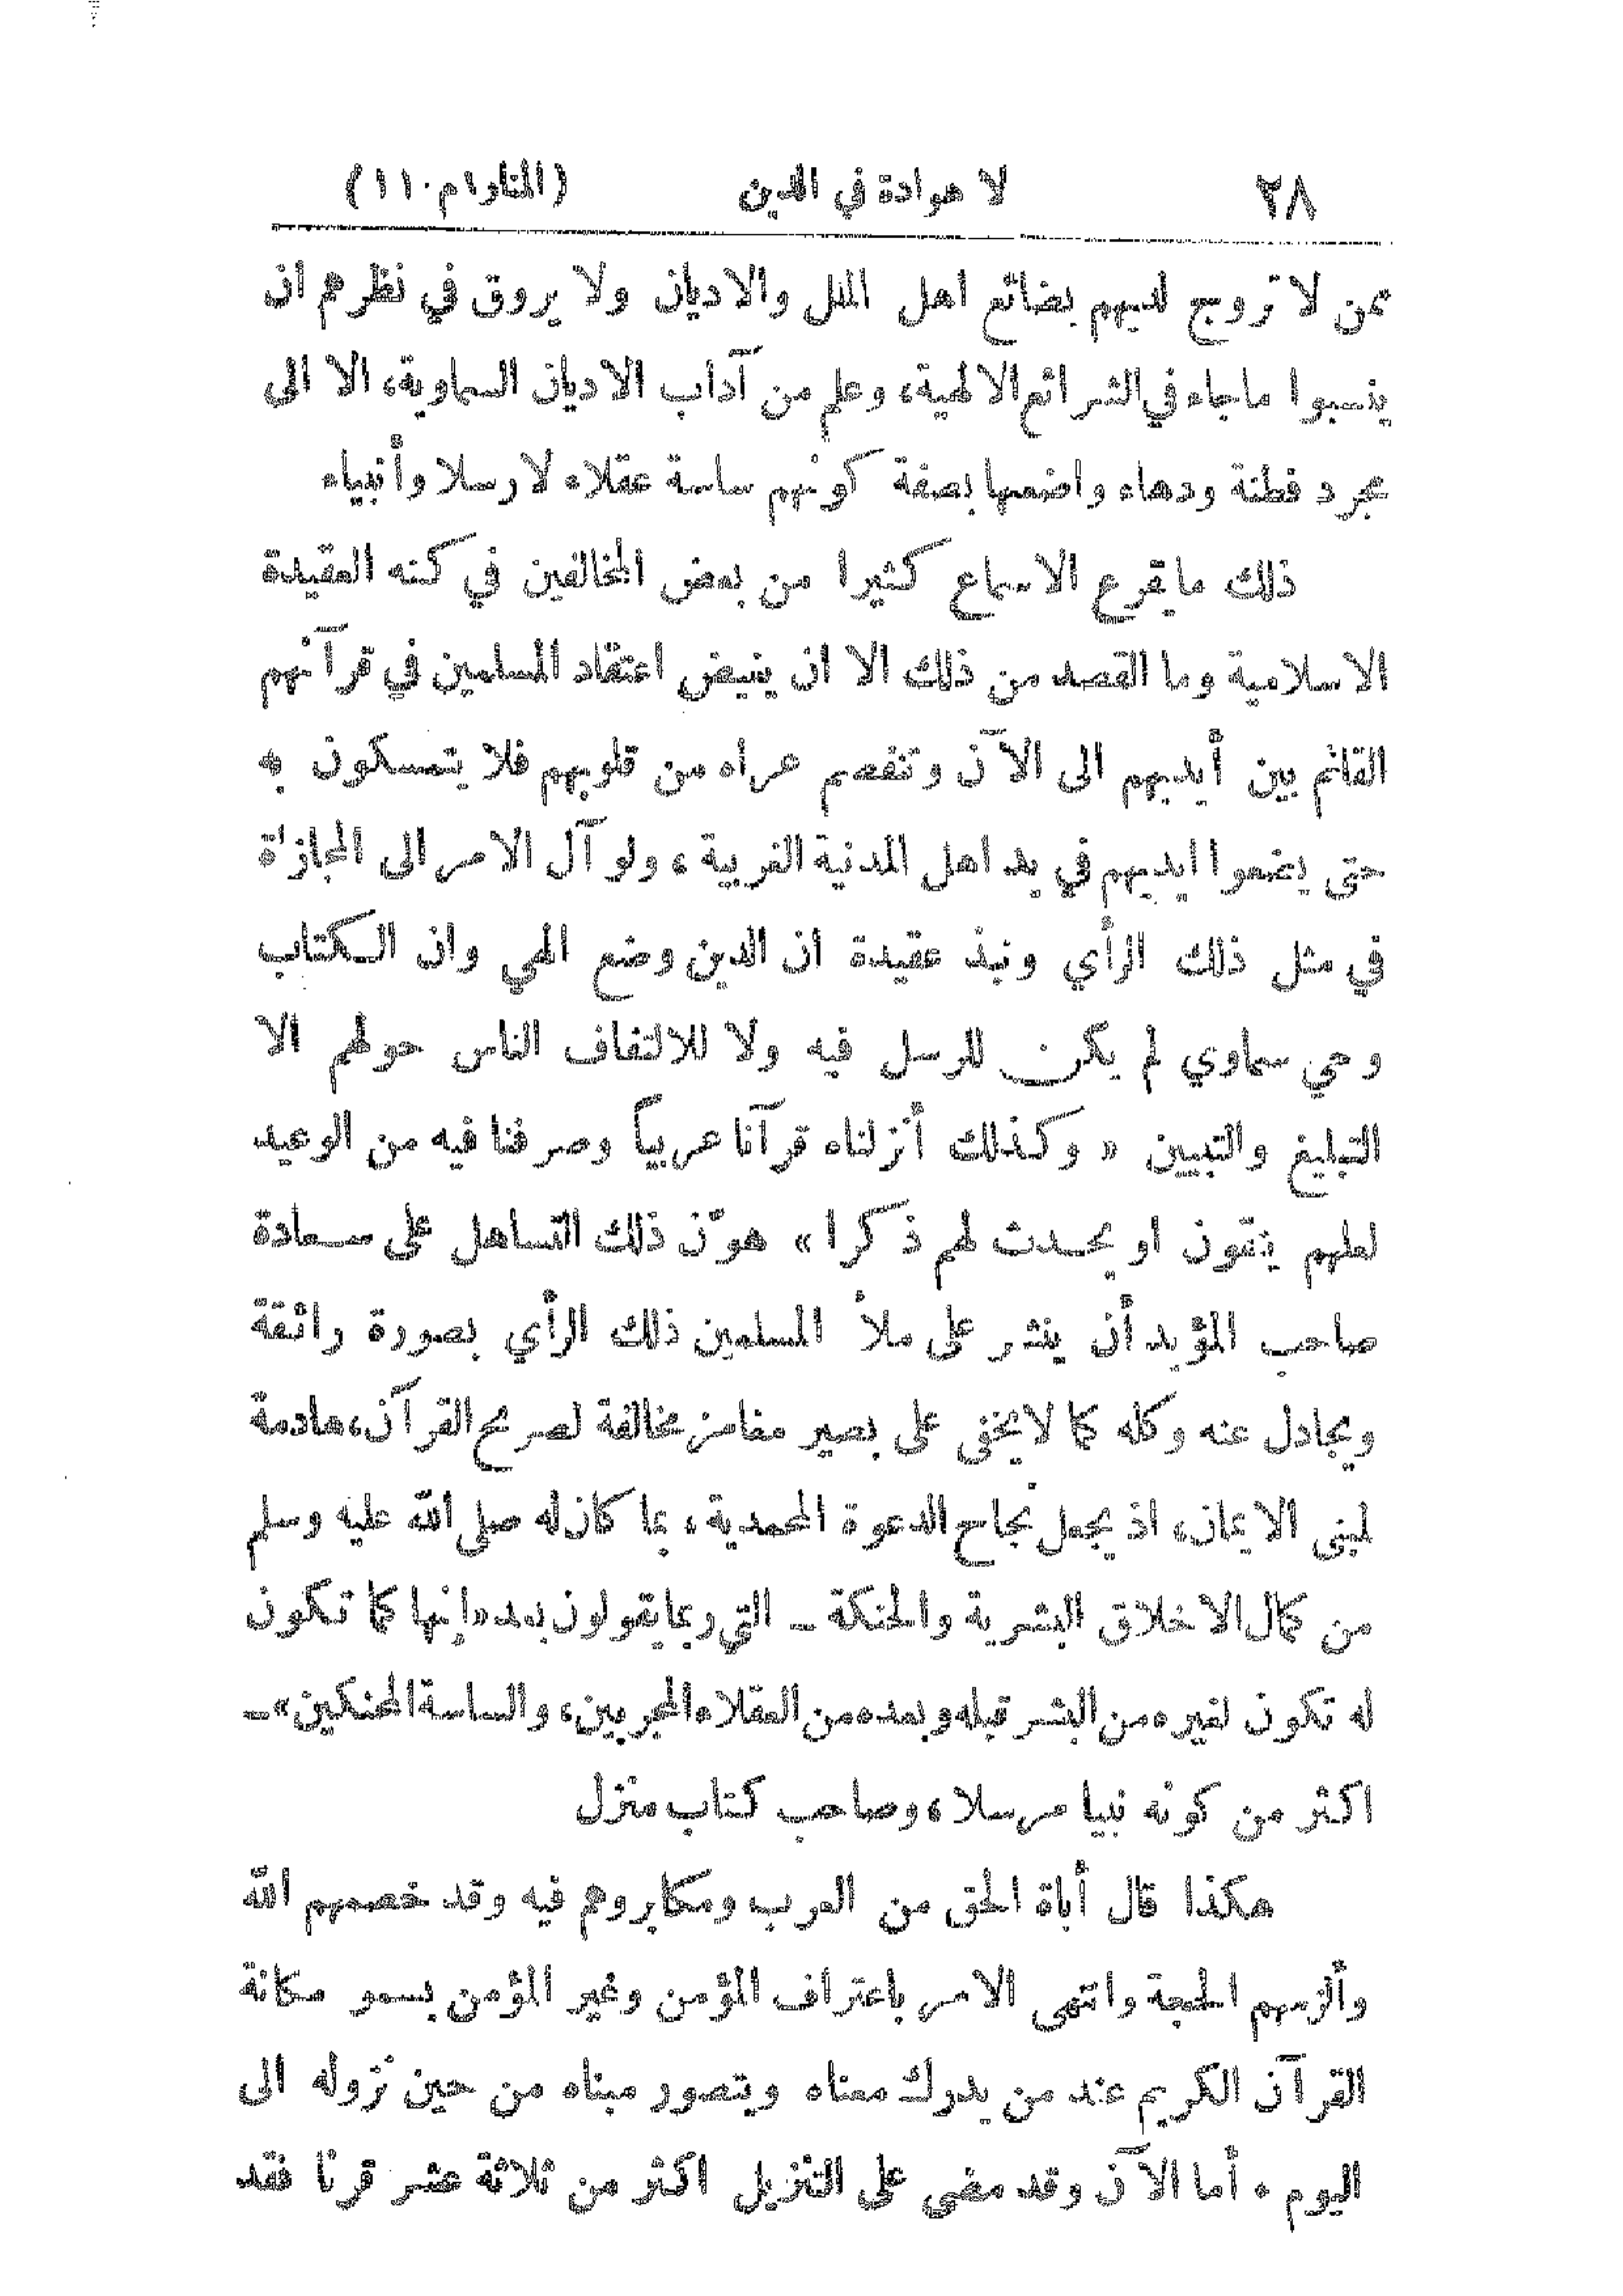 ٢٨ لا هوادة في الدين (المنار١م١١٠)
ممن لا تروج لديهم بضائع اهل الملل والاديان ولا يروق في نظرهم ان
ينسبوا ماجاء في الشرائع الالهية، وعلم من آداب الاديان السماوية، الا الى
مجرد فطنة ودهاء واضعها بصفة كونهم ساسة عقلاء لا رسلا وأنبياء
ذلك مايقرع الاسماع كثيرا من بعض المخالفين في كنه العقيدة
الاسلامية وما القصد من ذلك الا ان يغيض اعتقاد المسلمين في قرآنهم
القائم بين أيديهم الى الآن وتنفصم عراه من قلوبهم فلا يتمسكون به
حتى يضعوا ايديهم في يد اهل المدنية الغربية، ولو آل الامر الى المجازاة
في مثل ذلك الرأي ونبذ عقيدة ان الدين وضع الهي وان الكتاب
وحي سماوي لم يكن للرسل فيه ولا للالتفاف الناس حولهم الا
التبليغ والتبيين «وكذلك أنزلناه قرآنا عربياً وصرفنا فيه من الوعيد
لعلهم يتقون او يحدث لهم ذكرا» هوّن ذلك التساهل على سعادة
صاحب المؤيد أن ينشر على ملأ المسلمين ذلك الرأي بصورة رائقة
ويجادل عنه وكله كما لا يخفى على بصير مغامز مخالفة لصريح القرآن، هادمة
لمبنى الايمان، اذ يجعل نجاح الدعوة المحمدية، بما كان له صلى الله عليه وسلم
من كمال الاخلاق البشرية والحنكة ــ التي ربما يقولون بعد «إنها كما تكون
له تكون لغيره من البشر قبله وبعده من العقلاء المجربين، والساسة المحنكين» ــ
اكثر من كونه نبيا مرسلا، وصاحب كتاب منزل
هكذا قال أباة الحق من العرب ومكابروهم فيه وقد خصمهم الله
وألزمهم الحجة وانتهى الامر باعتراف المؤمن وغير المؤمن بسمو مكانة
القرآن الكريم عند من يدرك معناه ويتصور مبناه من حين نزوله الى
اليوم . أما الآن وقد مضى على التنزيل اكثر من ثلاثة عشر قرنا فقد